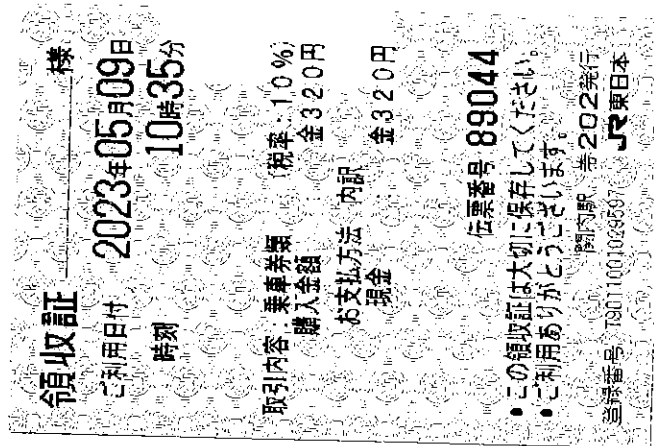 領収証 様
ご利用日付 2023年05月09日
時刻 10時35分
取引内容:乗車券類 (税率:10%)
購入金額 金320円
お支払方法 内訳
現金 金320円
伝票番号 89044
•この領収証は大切に保存してください。
•ご利用ありがとうございます。
関内駅 券202発行
登録番号 T9011001029597 JR東日本